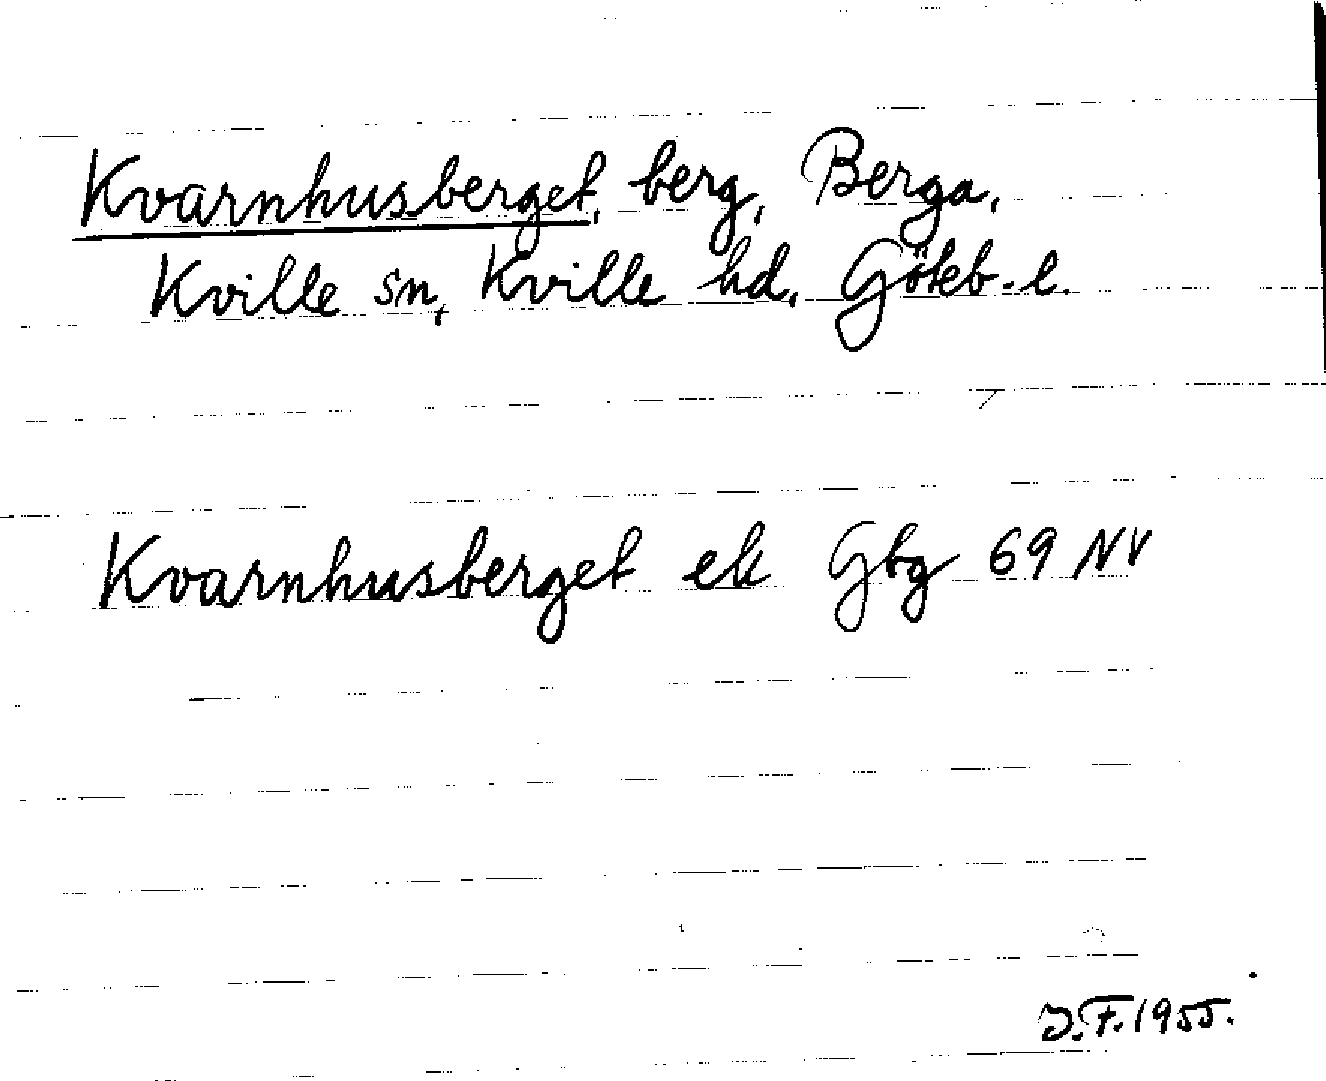 Kvarnhusberget, berg, Berga,
Kville sn, Kville hd, Göteb-l.
Kvarnhusberget ek Gbg 69 NV
J.F. 1955.